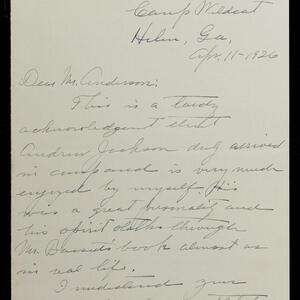 Camp Wildcat
Helen, Ga,
Apr. 11-1926
Dear Mr. Anderson:
This is a tardy
acknowledgment that
Andrew Jackson duly arrived
in camp and is very much
enjoyed by myself. His
was a great personality and
his spirit stalks through
Mr. Bassett's book almost as
in real life.
I understand your